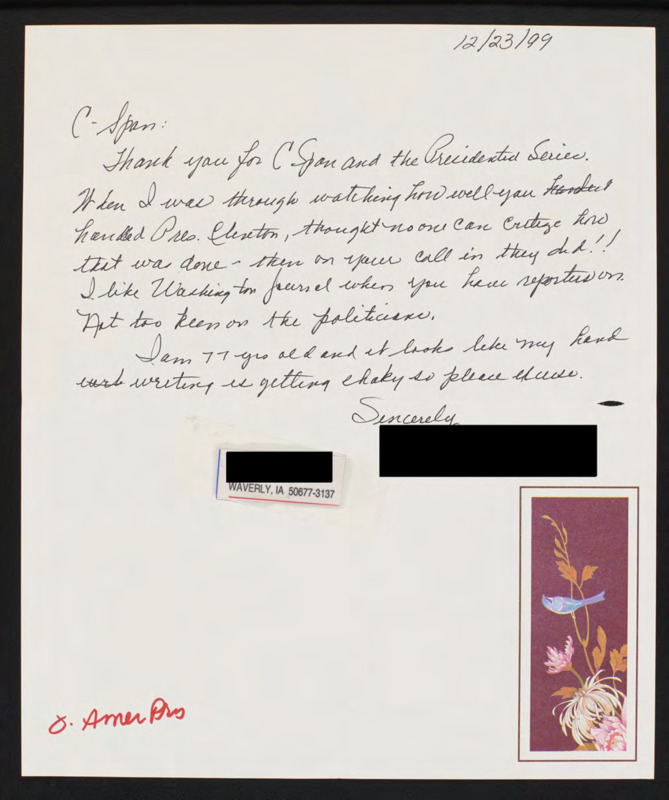 12/23/99
C-Span:
Thank you for C Span and the Presidential Series.
When I was through watching how well you
handled Pres. Clinton, thought no one can critize how
that was done - then on your call in they did!!
I like Washington Journal when you have reporters on.
Not too keen on the politicians.
I am 77 yrs old and it looks like my hand
writing is getting shaky so please excuse.
Sincerely
WAVERLY, IA 50677-3137
Amer Pres